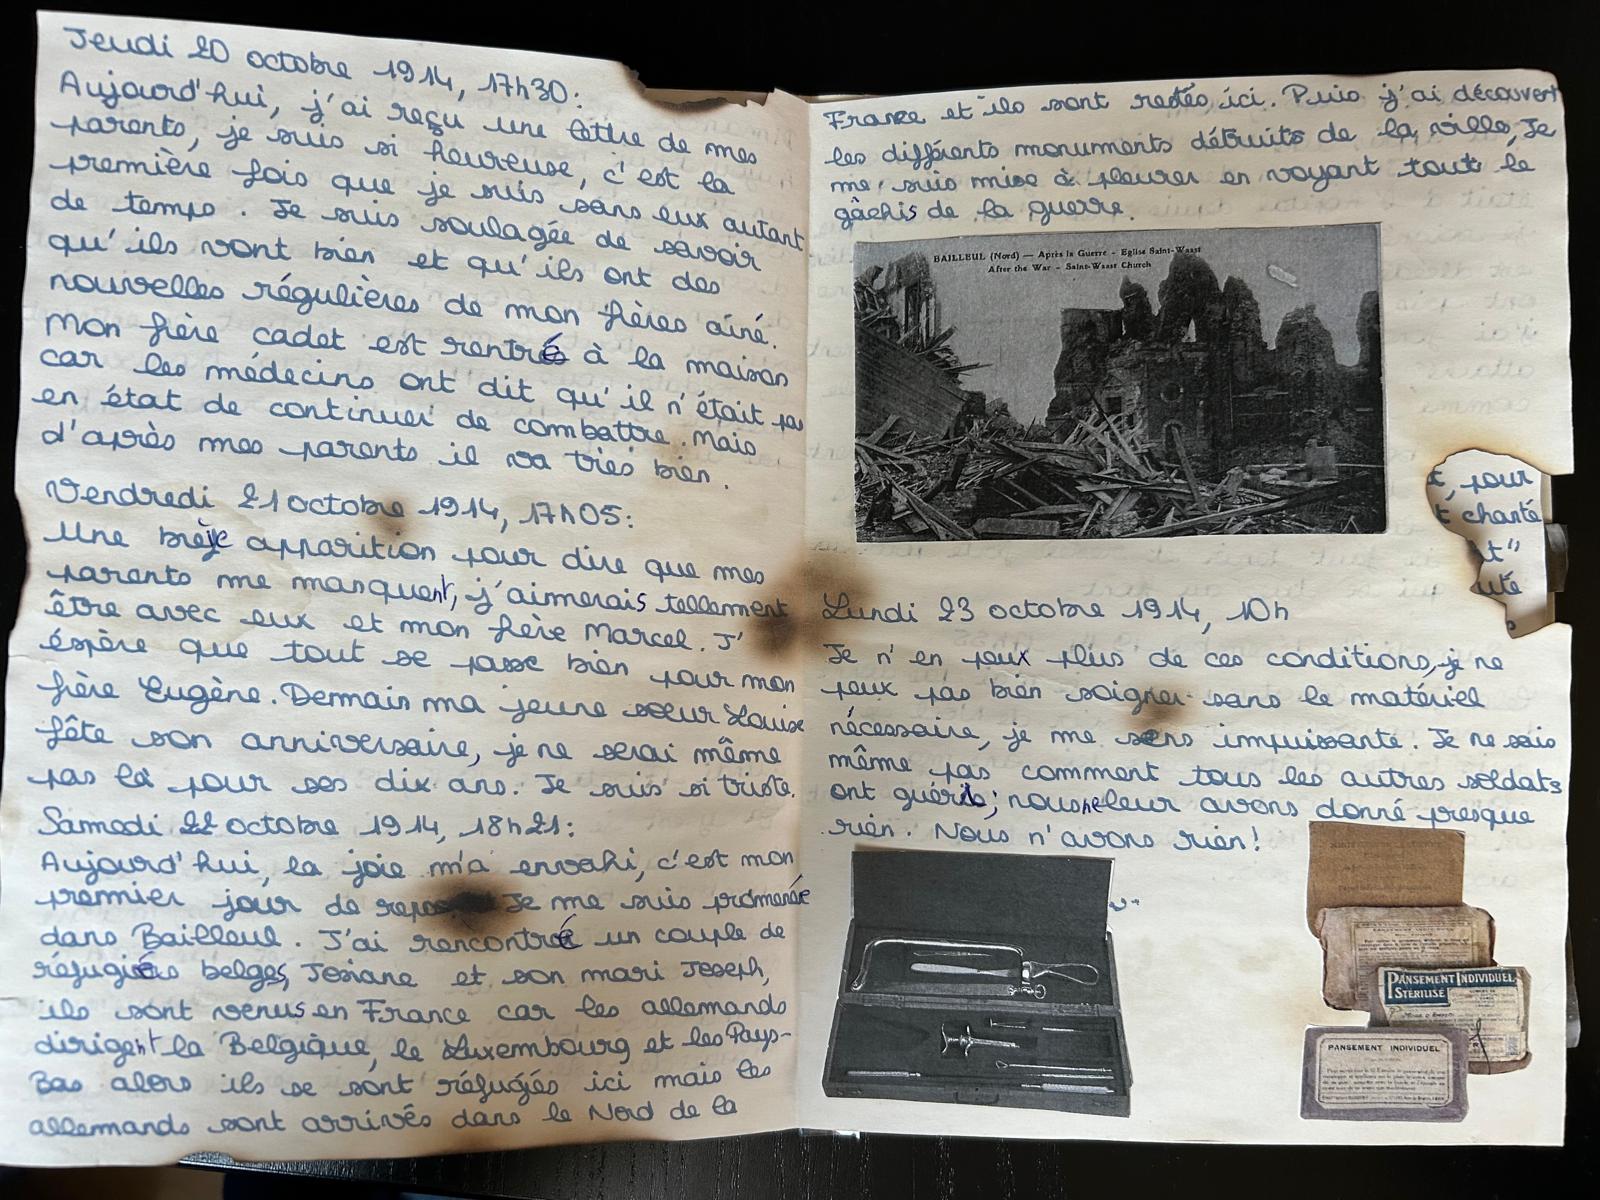 Jeudi 20 octobre 1914, 17h30:
Aujourd'hui, j'ai reçu une lettre de mes
parents, je suis si heureuse, c'est la
première fois que je suis sans eux autant
de temps. Je suis soulagée de savoir
qu'ils vont bien et qu'ils ont des
nouvelles régulières de mon frères aîné.
Mon frère cadet est rentré à la maison
car les médecins ont dit qu'il n'était pas
en état de continuer de combattre. Mais
d'après mes parents il va très bien.
Vendredi 21 octobre 1914, 17h05:
Une brève apparition pour dire que mes
parents me manquent, j'aimerais tellement
être avec eux et mon frère Marcel. J'
éspère que tout se passe bien pour mon
frère Eugène. Demain ma jeune sœur Louise
fête son anniversaire, je ne serai même
pas là pour ses dix ans. Je suis si triste.
Samedi 22 octobre 1914, 18h21:
Aujourd'hui, la joie m'a envahi, c'est mon
premier jour de repos Je me suis promenée
dans Bailleul. J'ai rencontré un couple de
réfugiés belges, Josiane et son mari Joseph,
ils sont venus en France car les allemands
dirigent la Belgique, le Luxembourg et les Pays-
Bas alors ils se sont réfugiés ici mais les
allemands sont arrivés dans le Nord de la
France et ils sont restés ici. Puis j'ai découvert
les différents monuments détruits de la ville, Je
me suis mise à pleurer en voyant tout le
gâchis de la guerre.
BAILLEUL (Nord) — Après la Guerre - Eglise Saint-Waast
After the War - Saint-Waast Church
, pour
chanté
t"
uté
Lundi 23 octobre 1914, 10h
Je n'en peux plus de ces conditions, je ne
peux pas bien soigner sans le matériel
nécessaire, je me sens impuissante. Je ne sais
même pas comment tous les autres soldats
ont guéris; nous ne leur avons donné presque
rien. Nous n'avons rien!
PANSEMENT INDIVIDUEL
STÉRILISÉ
PANSEMENT INDIVIDUEL